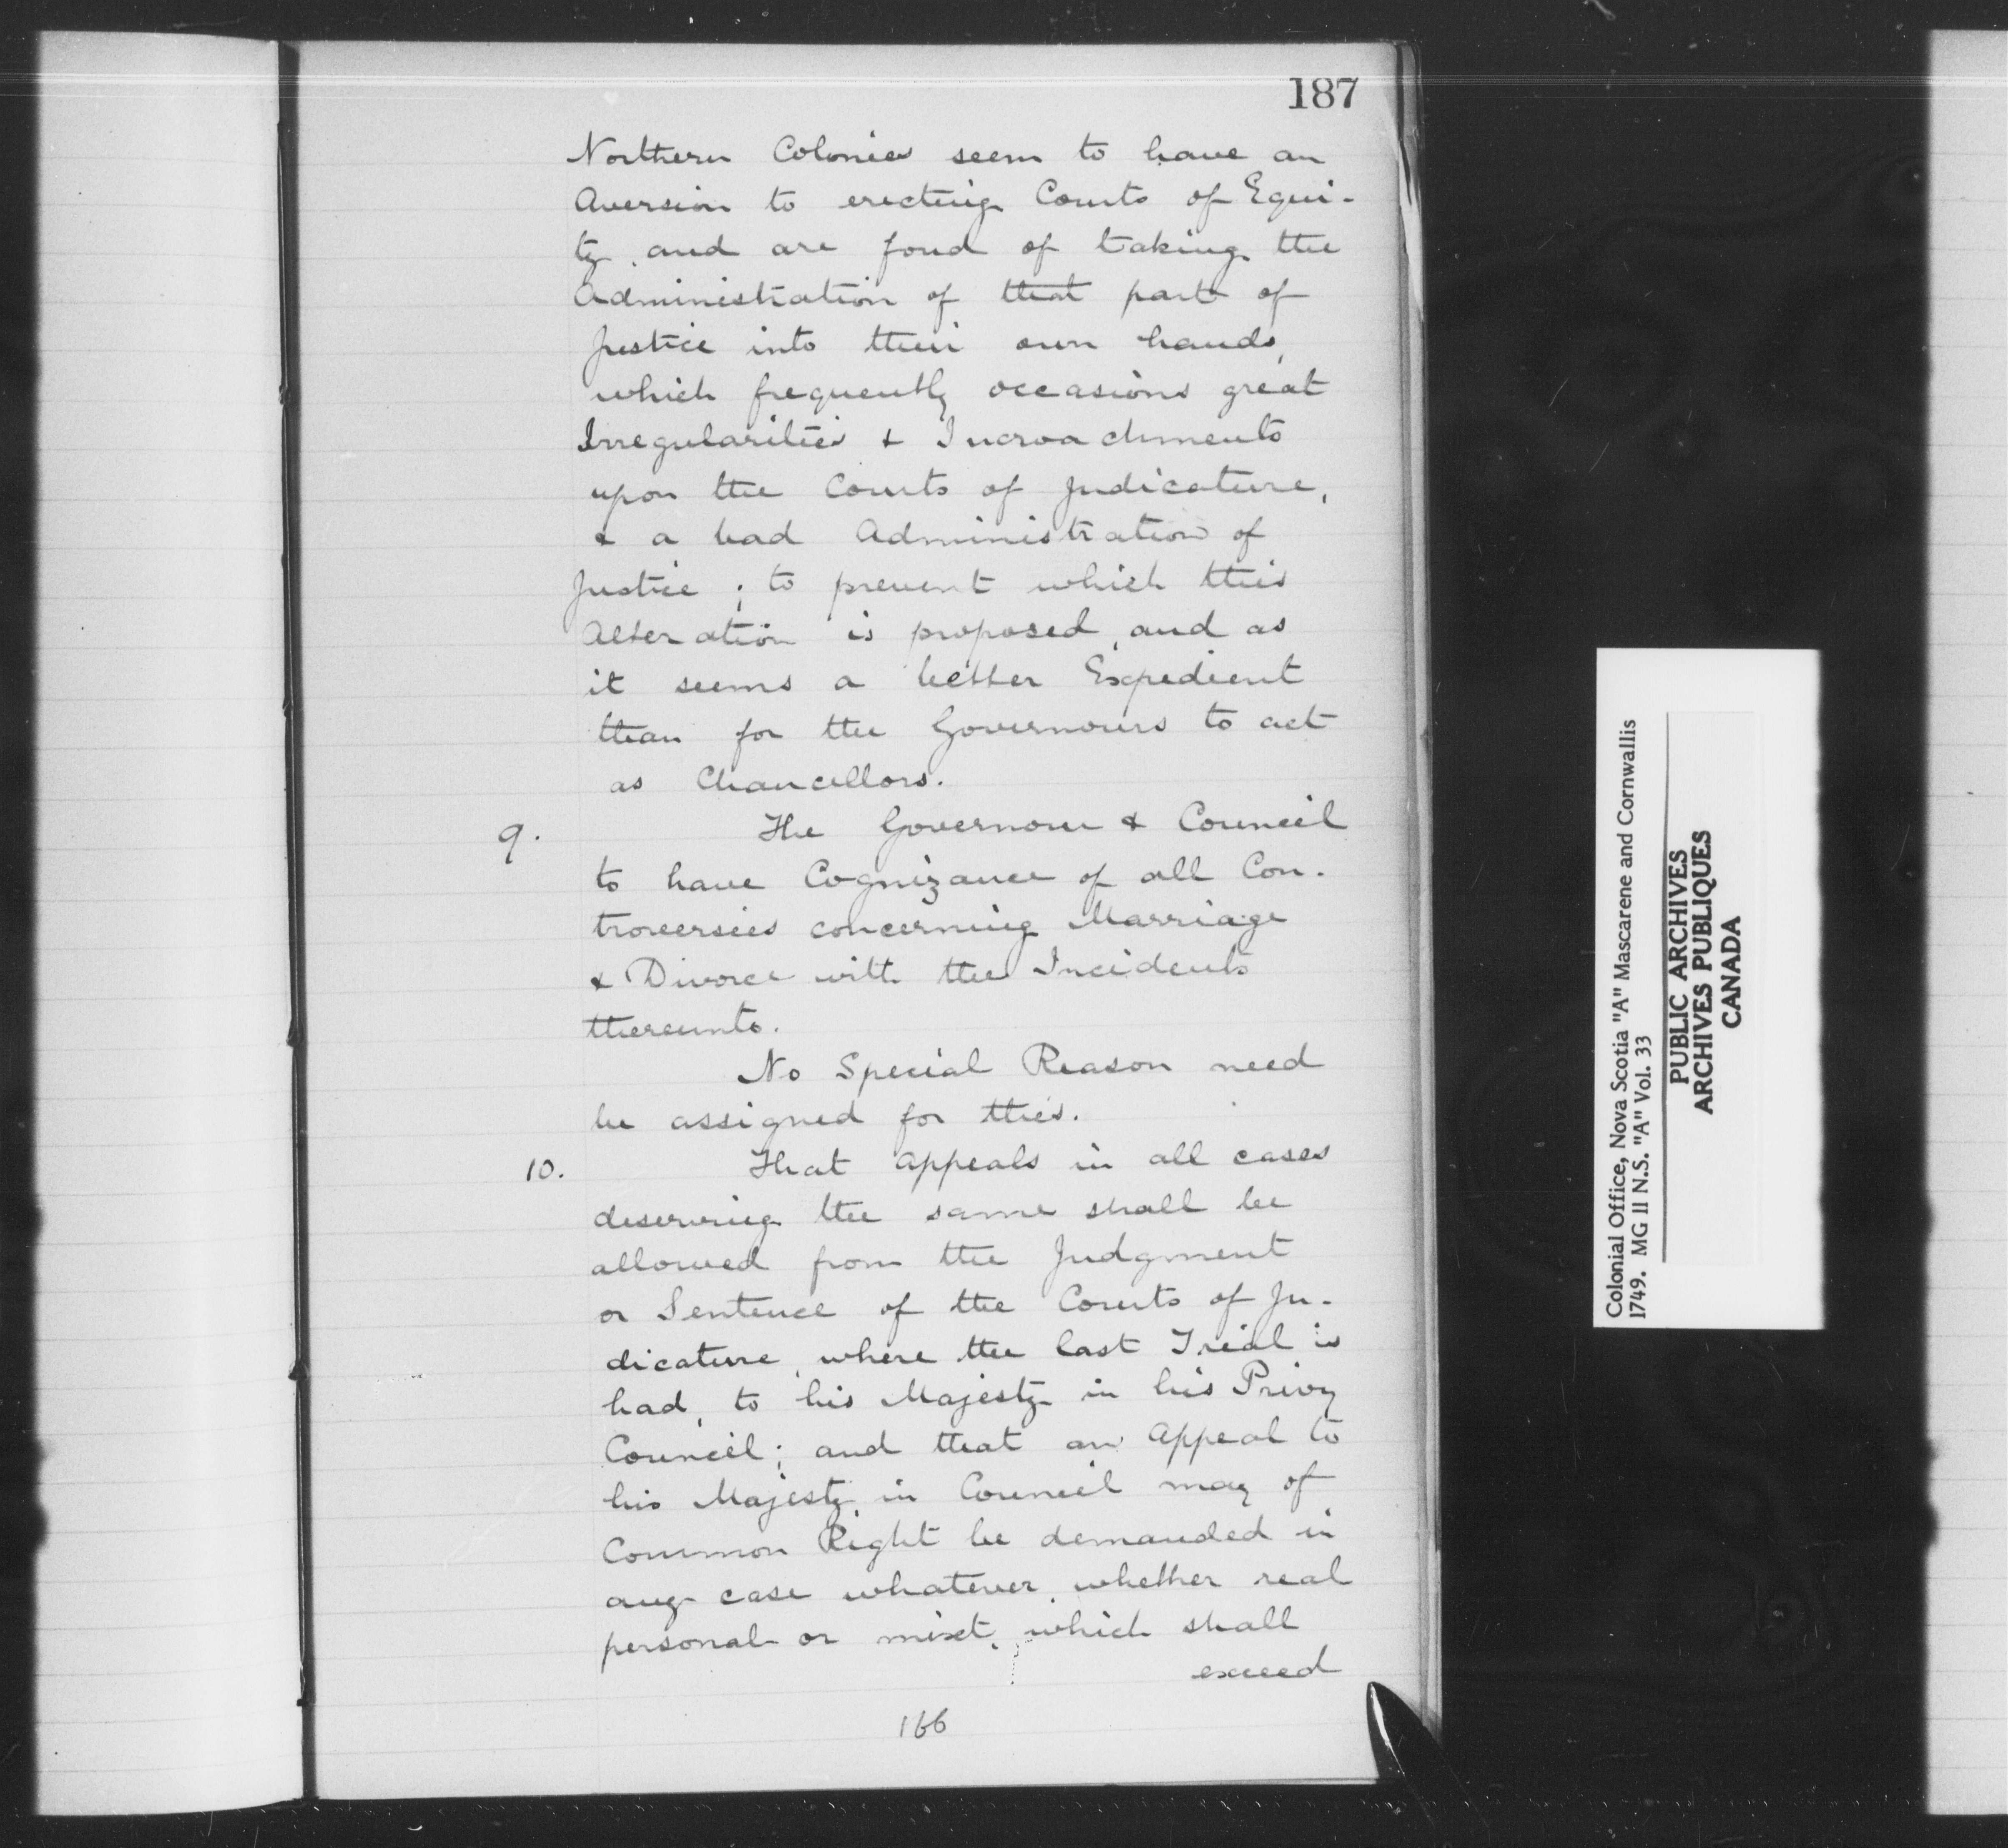 187
Northern Colonies seem to have an
Aversion to erecting Courts of Equi-
ty, and are fond of taking the
Administration of that part of
Justice into their own hands,
which frequently occasions great
Irregularities & Incroachments
upon the Courts of Judicature,
& a bad Administration of
Justice; to prevent which this
Alteration is proposed, and as
it seems a better Expedient
than for the Governours to act
as Chancellors.
9. The Governour & Council
to have Cognizance of all Con-
troversies concerning Marriage
& Divorce with the Incidents
thereunto.
No Special Reason need
be assigned for this.
10. That Appeals in all cases
deserving the same shall be
allowed from the Judgment
or Sentence of the Courts of Ju-
dicature, where the last Trial is
had, to his Majesty in his Privy
Council; and that an Appeal to
his Majesty in Council may of
Common Right be demanded in
any case whatever, whether real
personal or mixt, which shall
exceed
166
Colonial Office, Nova Scotia "A" Mascarene and Cornwallis
1749. MG II N.S. "A" Vol. 33
PUBLIC ARCHIVES
ARCHIVES PUBLIQUES
CANADA